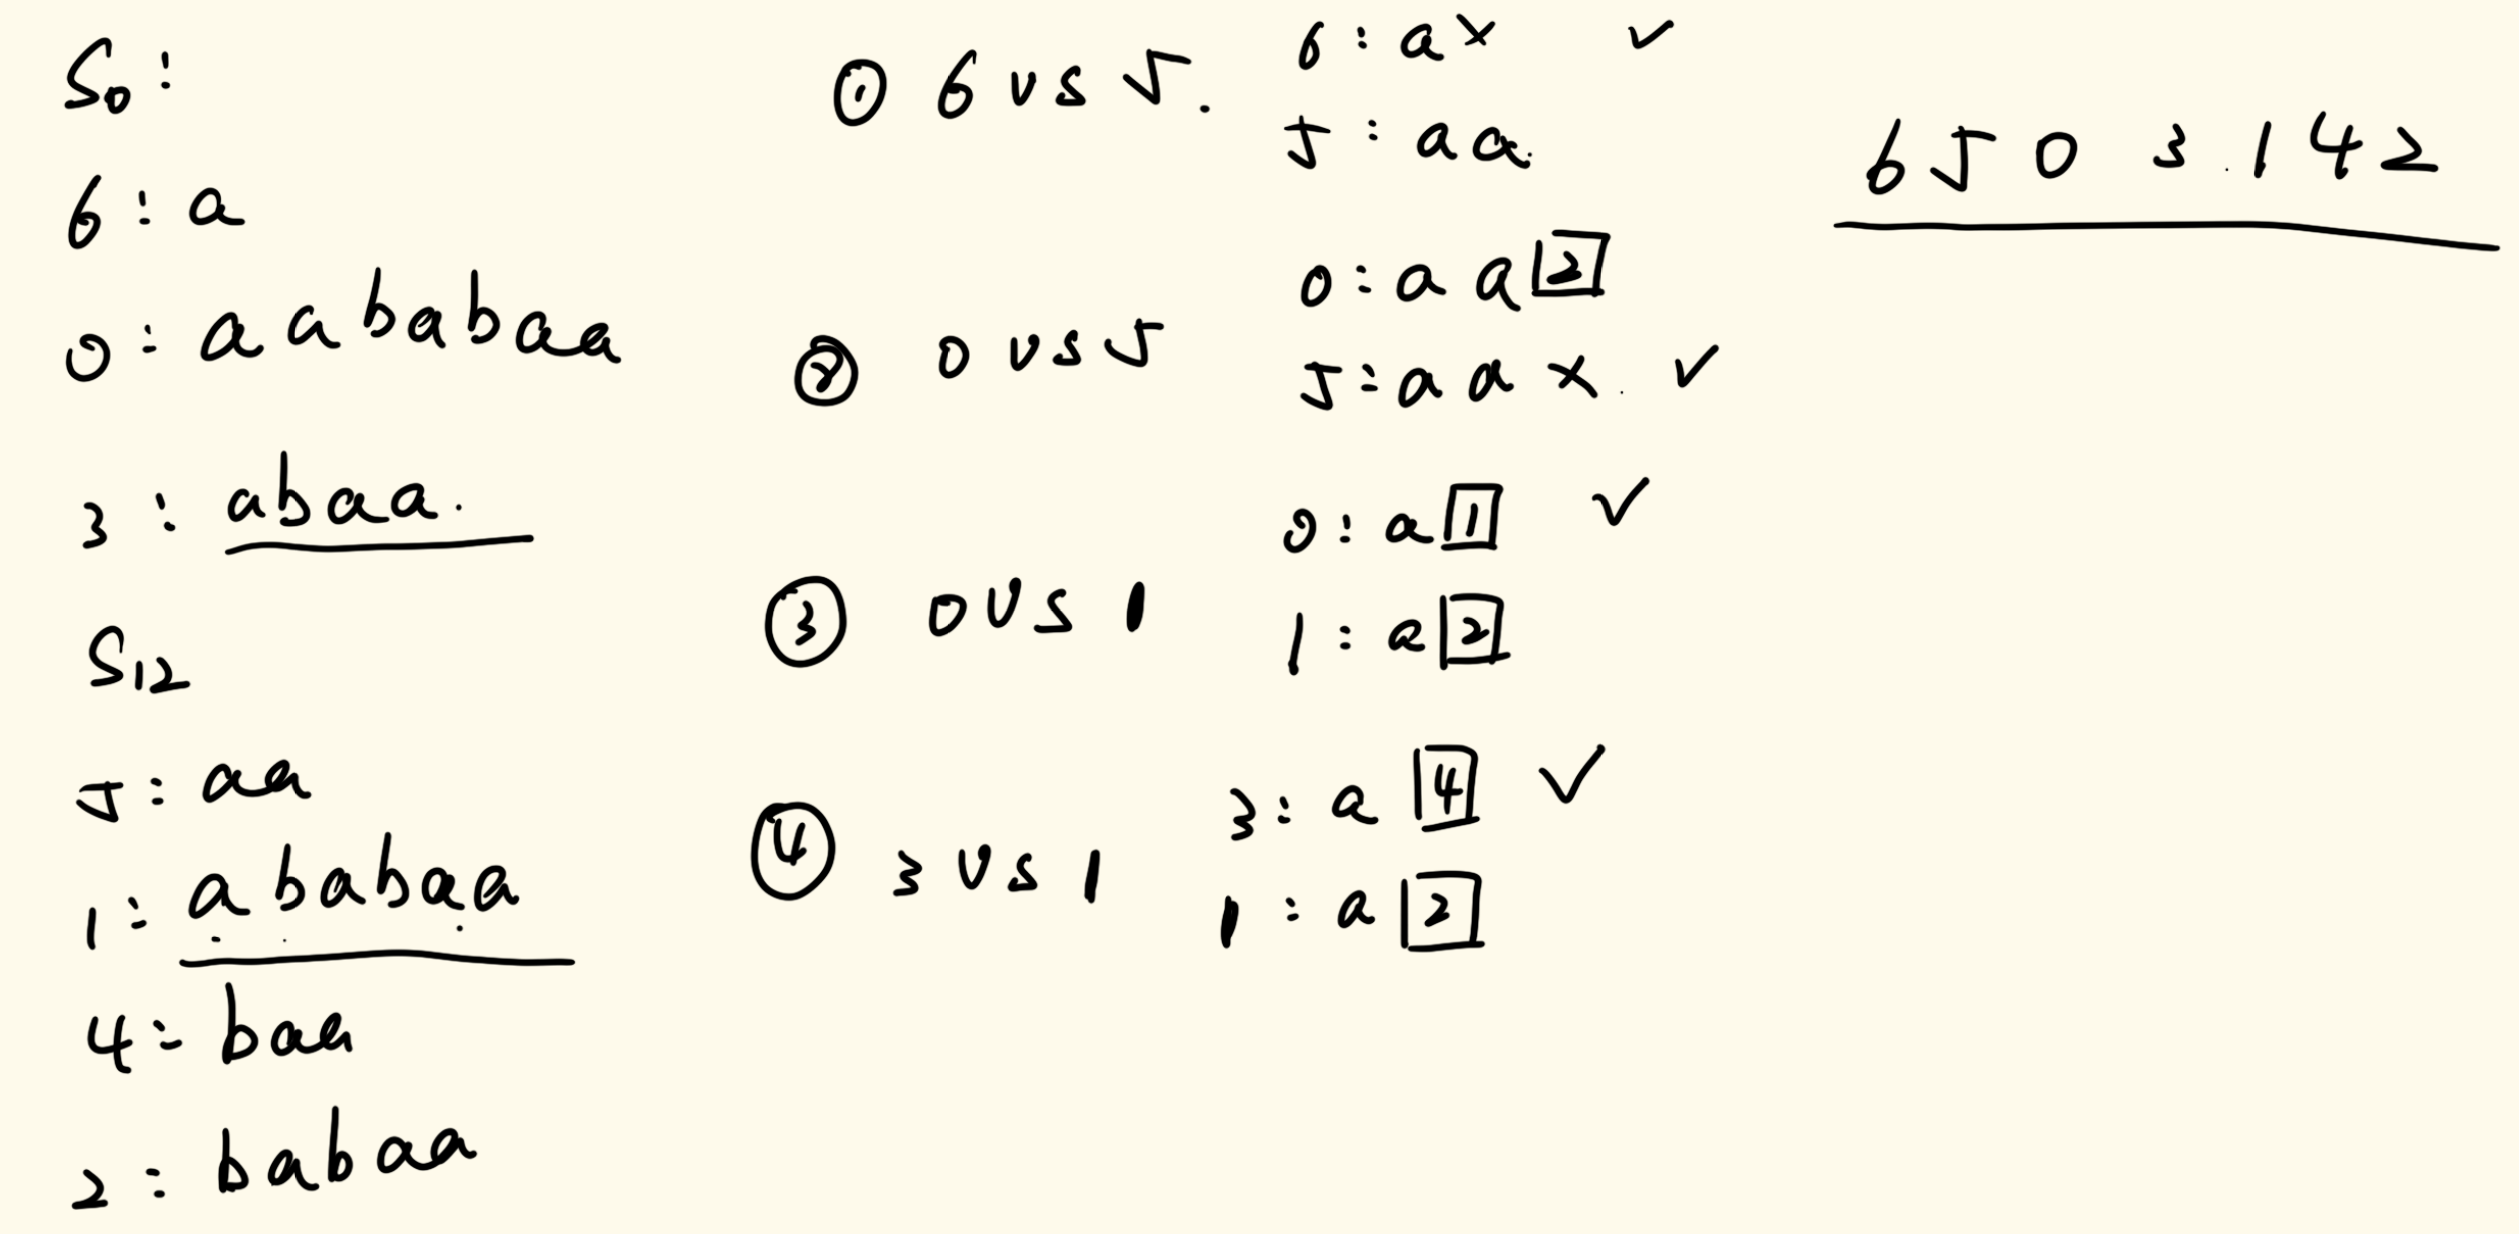 S0:
6: a
0: aababaa
3: abaa.
S12
5: aa
1: ababaa
4: baa
2: babaa
① 6 vs 5.
6: a× ✓
5: aa.
② 0 vs 5
0: aa2
5: aa× ✓
③ 0 vs 1
0: a1 ✓
1: a2
④ 3 vs 1
3: a4 ✓
1: a2
6 5 0 3 1 4 2